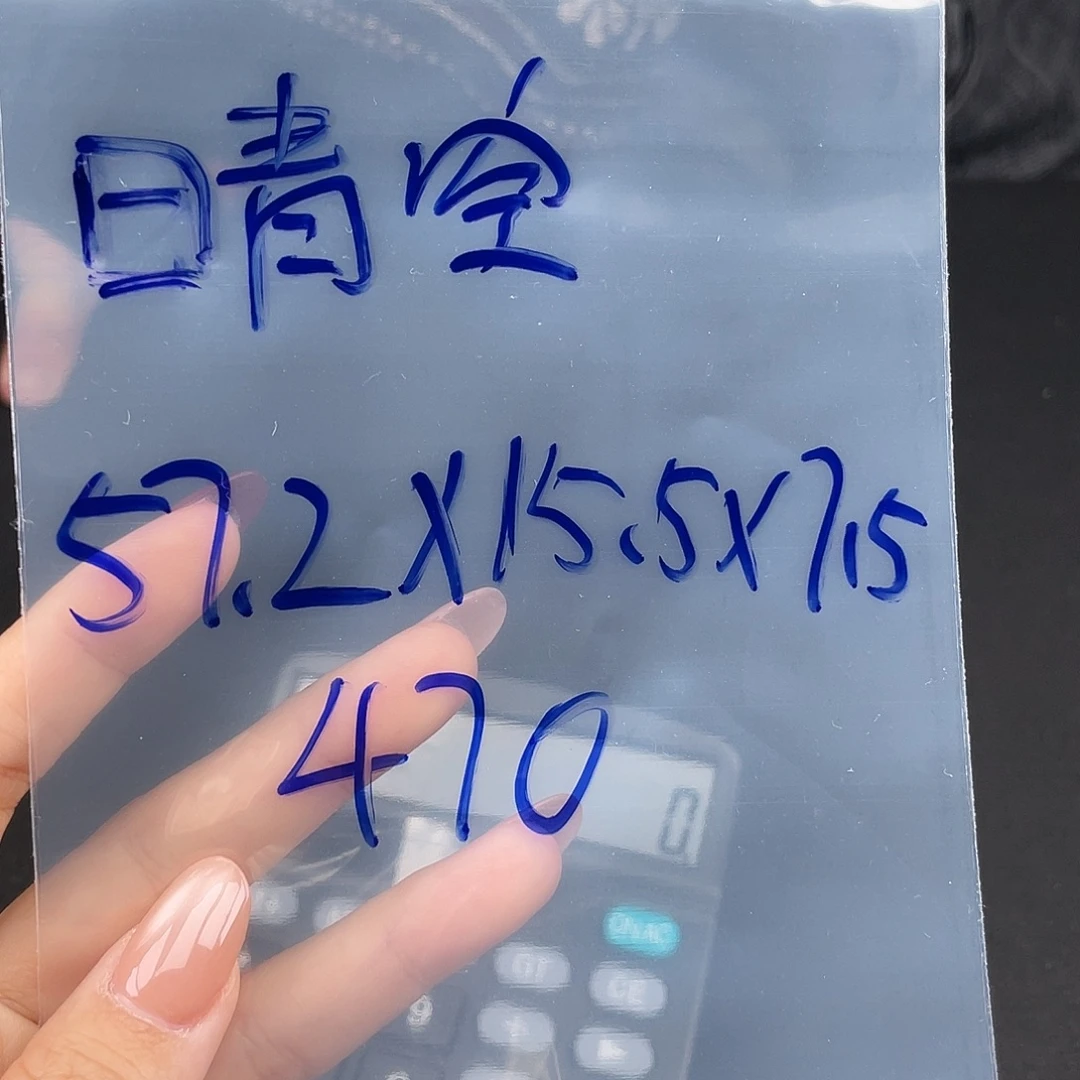 晴空
57.2x15.5x7.5
470
0
ON/AC
GT
CE
9